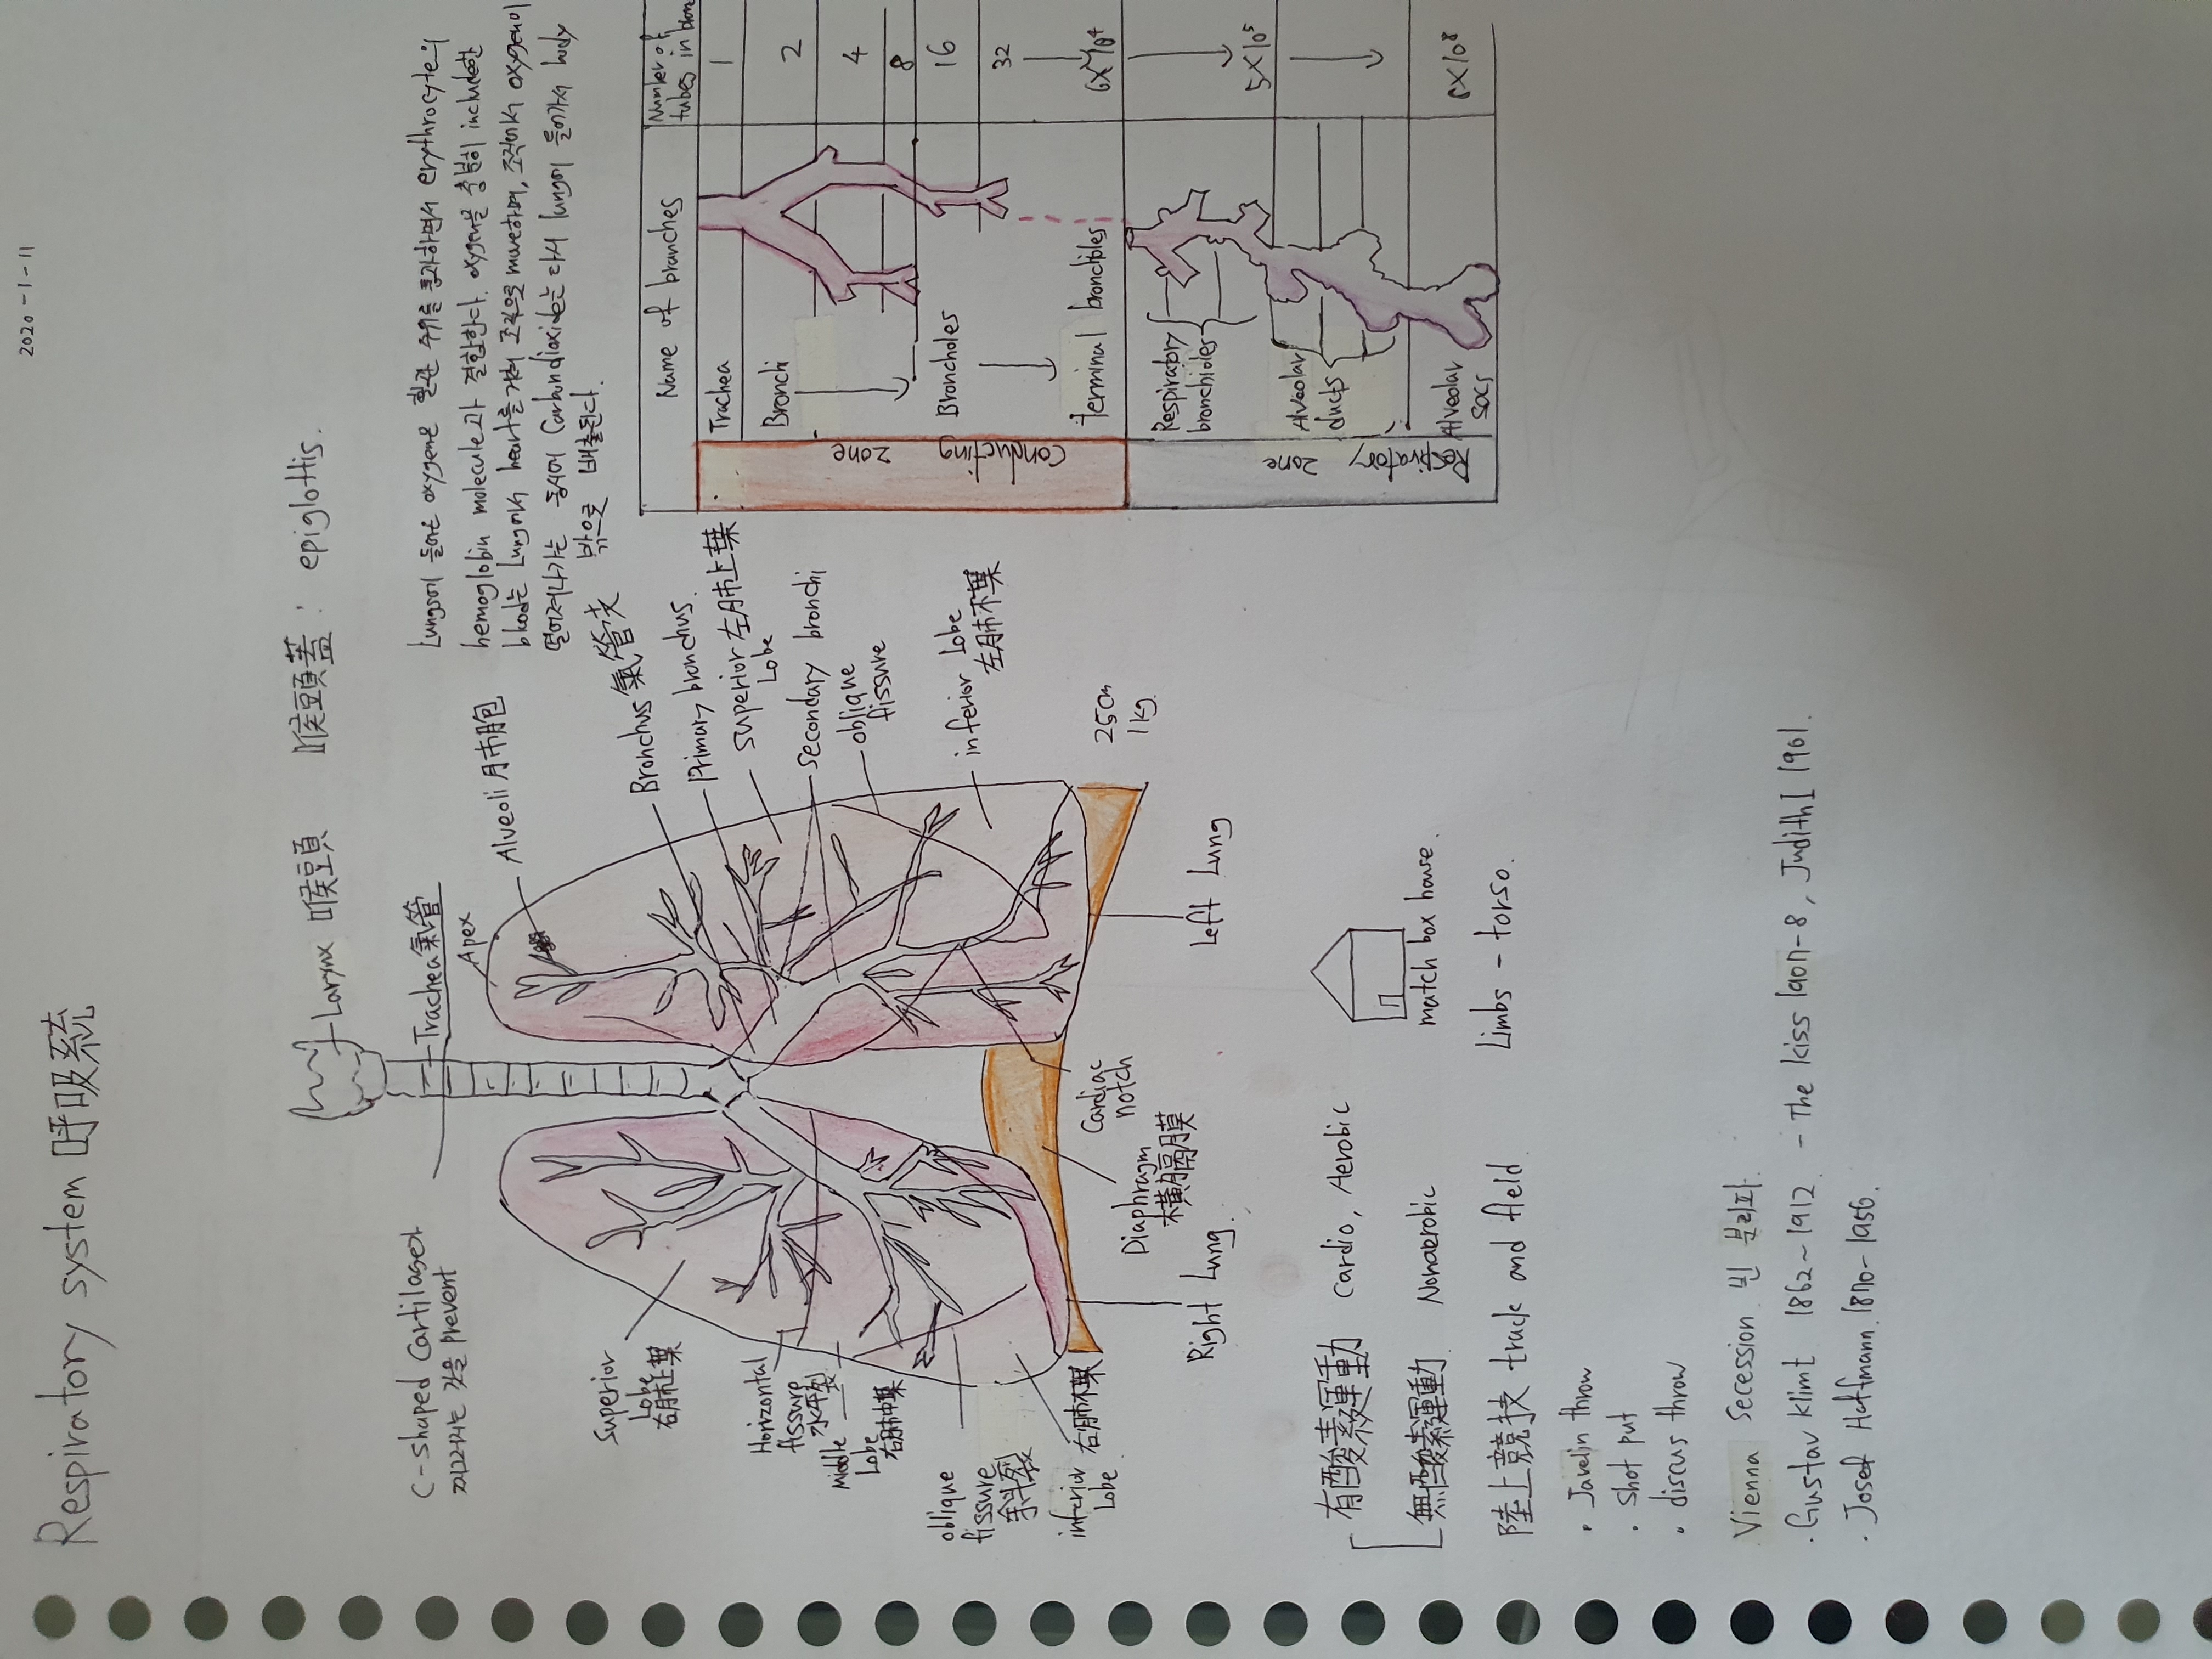 2020-1-11
Respiratory system 呼吸系統
Larynx 喉頭
喉頭蓋 : epiglottis.
C-shaped Cartilage가
찌그러지는 것을 prevent
Trachea 氣管
Apex
Alveoli 肺胞
Lungs에 들어온 oxygen은 혈관 주위를 통과하면서 erythrocyte의
hemoglobin molecule과 결합한다. oxygen을 충분히 included한
blood는 Lung에서 heart를 거쳐 조직으로 move하며, 조직에서 oxygen이
떨어져나가는 동시에 Carbondioxide는 다시 lung에 들어가서 body
밖으로 배출된다.
Bronchus 氣管支
Primary bronchus.
superior 左肺上葉
Lobe
secondary bronchi
oblique
fissure
inferior Lobe
左肺下葉
25cm
1kg.
Superior
Lobe
右肺上葉
Horizontal
fissure
水平裂
Middle
Lobe
右肺中葉
oblique
fissure
斜裂
inferior 右肺下葉
Lobe
Cardiac
notch
Diaphragm
横膈膜
Right Lung.
Left Lung
Name of branches
Number of
tubes in
Trachea
1
Bronchi
2
4
8
Broncholes
16
32
terminal bronchioles
6X10⁴
Respiratory
bronchioles
5X10⁵
Alveolar
ducts
Alveolar
sacs
8X10⁸
Conducting
zone
Respiratory
zone
有酸素運動 Cardio, Aerobic
無酸素運動 Nonaerobic
match box house.
陸上競技 track and field
Limbs - torso.
· Javelin throw
· Shot put
· discus throw
Vienna Secession 빈 분리파.
· Gustav klimt 1862~1912. - The kiss 1907-8, Judith I 1901.
· Josef Hoffmann 1870-1956.